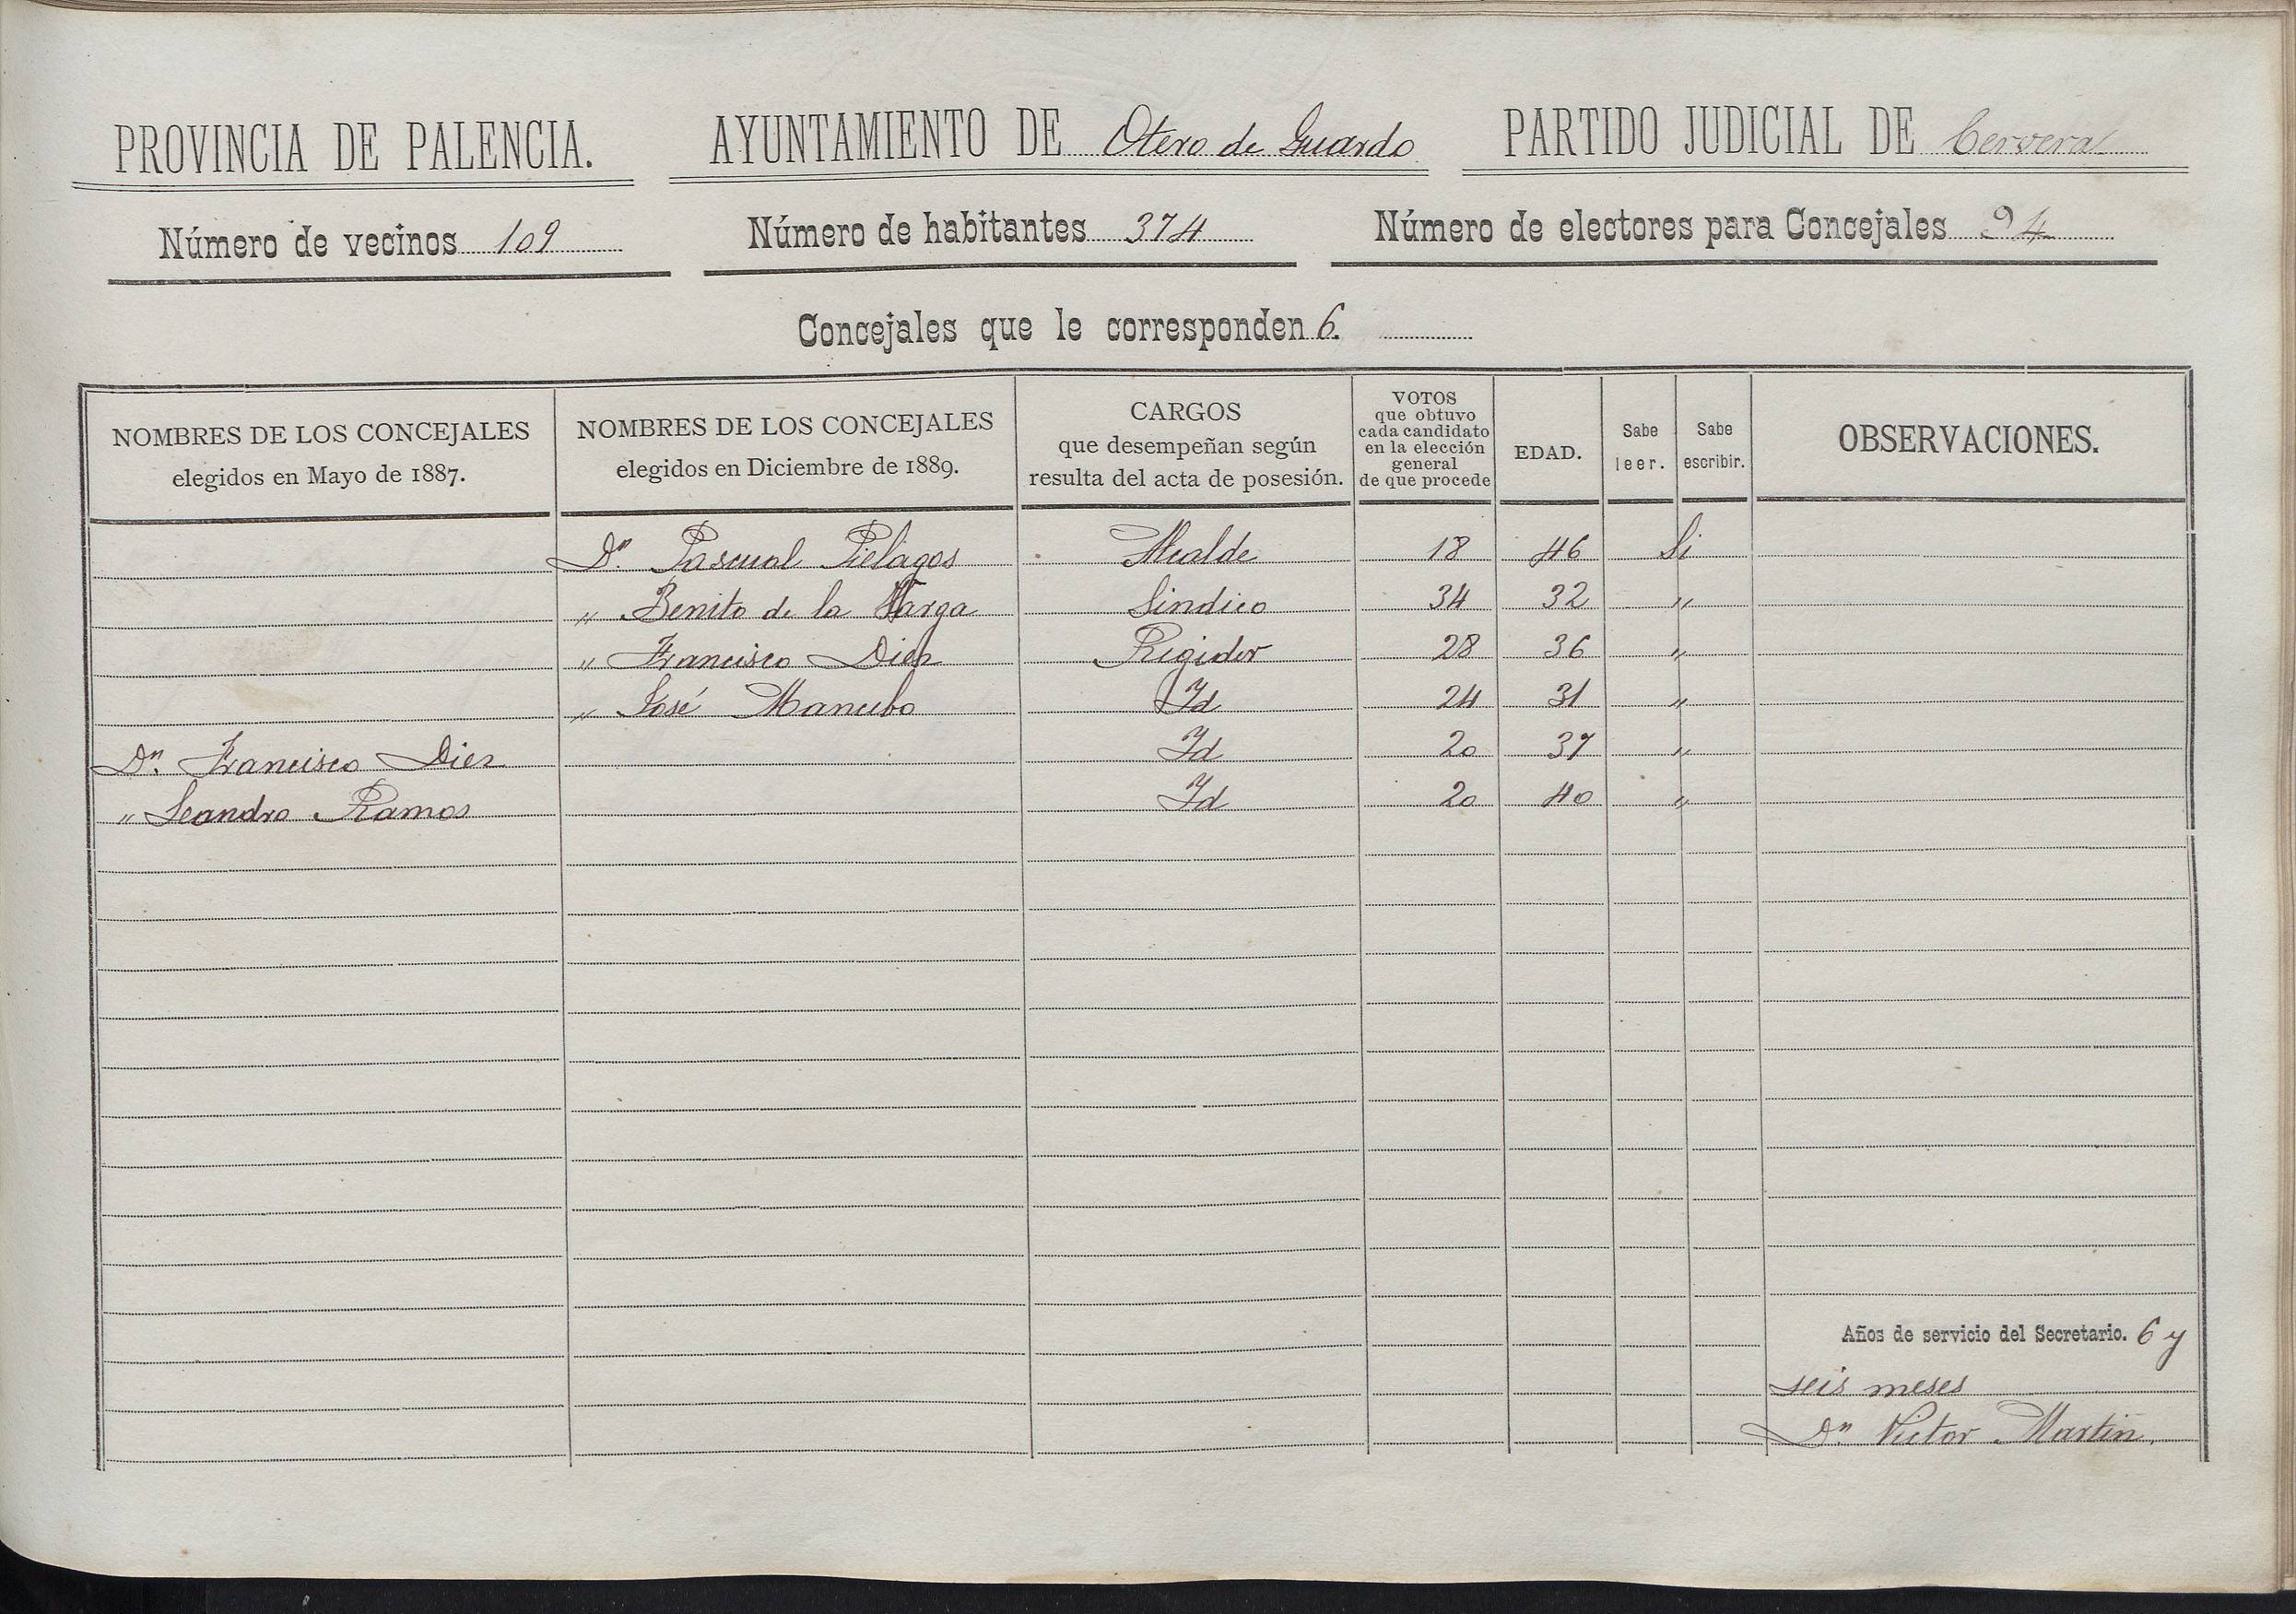 PROVINCIA DE PALENCIA. AYUNTAMIENTO DE Otero de Guardo PARTIDO JUDICIAL DE Cervera
Número de vecinos 109 Número de habitantes 374 Número de electores para Concejales 94
Concejales que le corresponden 6.
NOMBRES DE LOS CONCEJALES
elegidos en Mayo de 1887.
NOMBRES DE LOS CONCEJALES
elegidos en Diciembre de 1889.
CARGOS
que desempeñan según
resulta del acta de posesión.
VOTOS
que obtuvo
cada candidato
en la elección
general
de que procede
EDAD.
Sabe
leer.
Sabe
escribir.
OBSERVACIONES.
Dn. Pascual Pielagos Alcalde 18 46 Si
" Benito de la Varga Sindico 34 32 "
" Francisco Diez Rigidor 28 36 "
" José Mancebo Id 24 31 "
Dn. Francisco Diez Id 20 37 "
" Leandro Ramos Id 20 40 "
Años de servicio del Secretario. 6 y
seis meses
Dn. Victor Martin.